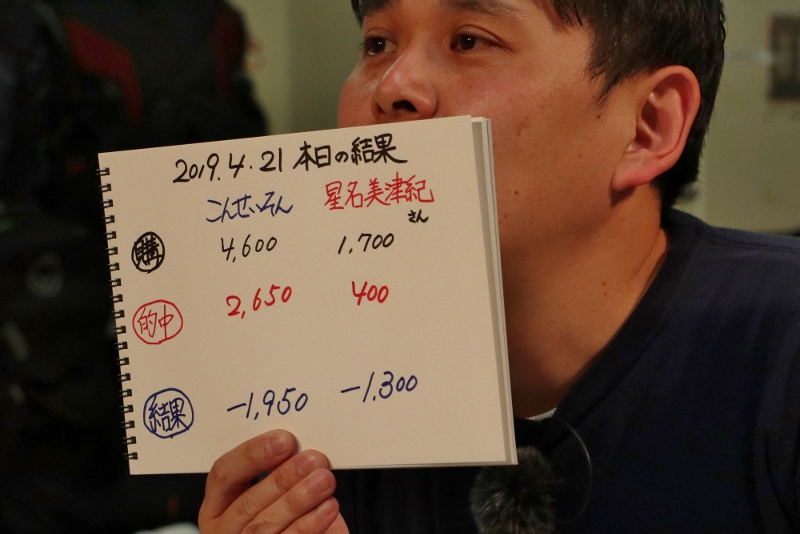 2019.4.21 本日の結果
こんせいそん 星名美津紀
さん
購 4,600 1,700
的中 2,650 400
結果 -1,950 -1,300